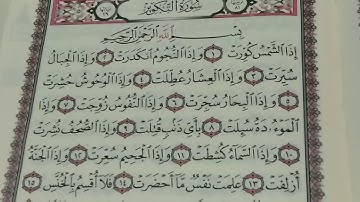 سُورَةُ التَّكْوِيرِ
بِسْمِ اللَّهِ الرَّحْمَٰنِ الرَّحِيمِ
إِذَا الشَّمْسُ كُوِّرَتْ ١ وَإِذَا النُّجُومُ انكَدَرَتْ ٢ وَإِذَا الْجِبَالُ
سُيِّرَتْ ٣ وَإِذَا الْعِشَارُ عُطِّلَتْ ٤ وَإِذَا الْوُحُوشُ حُشِرَتْ
٥ وَإِذَا الْبِحَارُ سُجِّرَتْ ٦ وَإِذَا النُّفُوسُ زُوِّجَتْ ٧ وَإِذَا
الْمَوْءُۥدَةُ سُئِلَتْ ٨ بِأَيِّ ذَنۢبٍ قُتِلَتْ ٩ وَإِذَا الصُّحُفُ نُشِرَتْ
١٠ وَإِذَا السَّمَاءُ كُشِطَتْ ١١ وَإِذَا الْجَحِيمُ سُعِّرَتْ ١٢ وَإِذَا الْجَنَّةُ
أُزْلِفَتْ ١٣ عَلِمَتْ نَفْسٌ مَّا أَحْضَرَتْ ١٤ فَلَا أُقْسِمُ بِالْخُنَّسِ ١٥